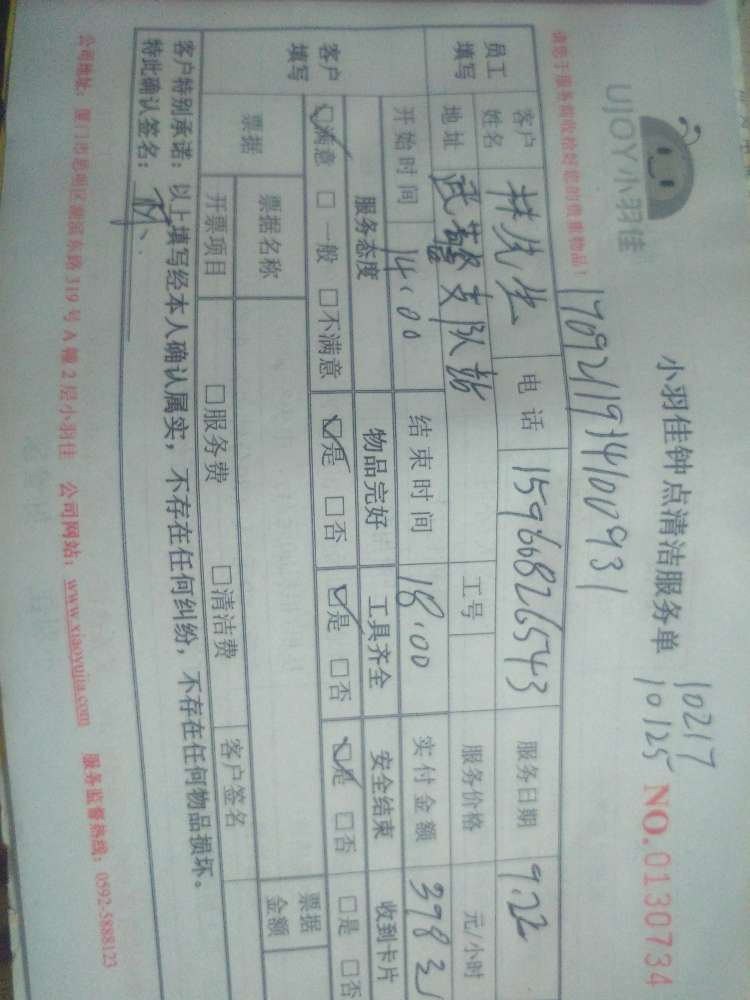 UJOY小羽佳
小羽佳钟点清洁服务单
10217
10125
NO.0130734
请您于服务前收拾好您的贵重物品!
1709211934100931
员工填写
客户姓名 林先生 电话 15966826543 服务日期 9.22
地址 武警支队站 工号 服务价格 元/小时
开始时间 14:00 结束时间 18:00 实付金额
客户填写
服务态度 物品完好 工具齐全 安全结束 收到卡片
☑满意 □一般 □不满意 ☑是 □否 ☑是 □否 ☑是 □否 □是 □否
票据 票据名称 票据金额
开票项目 □服务费 □清洁费 客户签名
客户特别承诺:以上填写经本人确认属实,不存在任何纠纷,不存在任何物品损坏。
特此确认签名:林
公司地址:厦门市思明区湖滨东路319号A幢2层小羽佳 公司网站:www.xiaoyujia.com 服务监督热线:0592-5888123